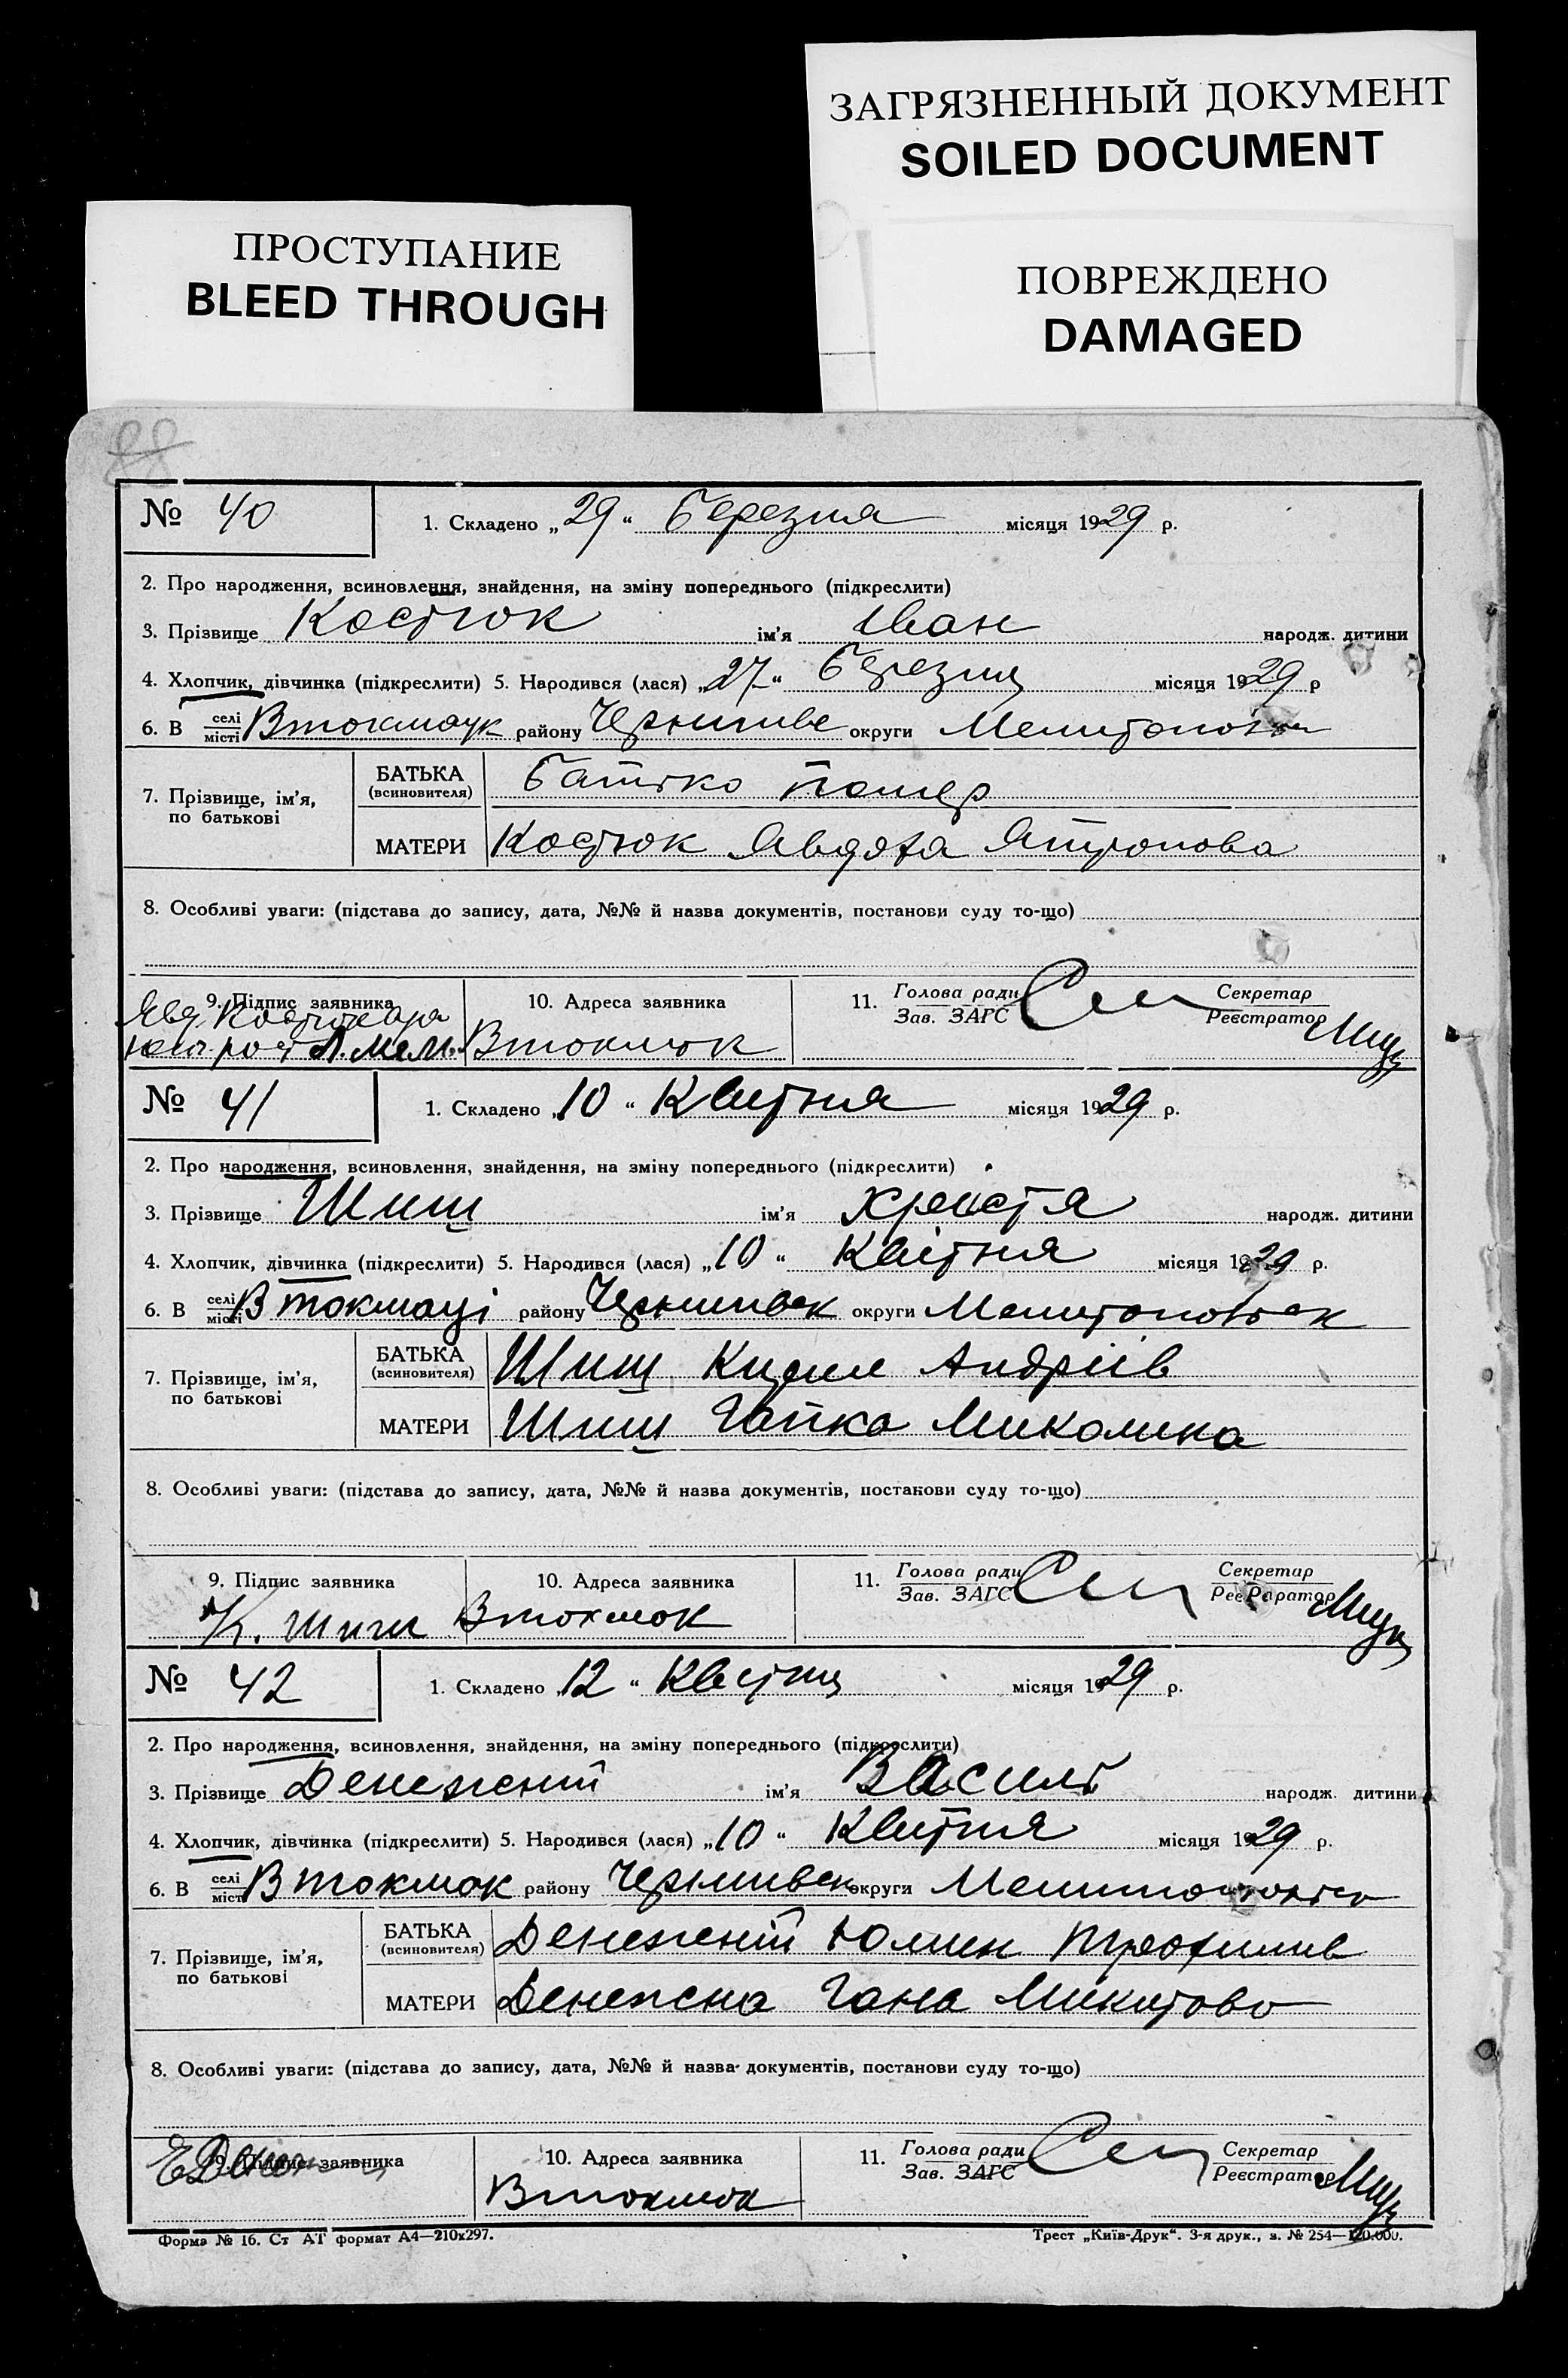 ЗАГРЯЗНЕННЫЙ ДОКУМЕНТ
SOILED DOCUMENT
ПРОСТУПАНИЕ
BLEED THROUGH
ПОВРЕЖДЕНО
DAMAGED
88
№ 40 1. Складено „29“ Березня місяця 1929 р.
2. Про народження, всиновлення, знайдення, на зміну попереднього (підкреслити)
3. Прізвище Костюк ім'я Іван народж. дитини
4. Хлопчик, дівчинка (підкреслити) 5. Народився (лася) „27“ Березня місяця 1929 р
6. В селі/місті Втокмаук району Чернигиве округи
7. Прізвище, ім'я, по батькові БАТЬКА (всиновителя) Батько помер
МАТЕРИ Костюк Явдоха
8. Особливі уваги: (підстава до запису, дата, №№ й назва документів, постанови суду то-що)
9. Підпис заявника 10. Адреса заявника 11. Голова ради Секретар
Зав. ЗАГС Реєстратор
Втокмок
№ 41 1. Складено „10“ Квитня місяця 1929 р.
2. Про народження, всиновлення, знайдення, на зміну попереднього (підкреслити)
3. Прізвище Шиш ім'я Христя народж. дитини
4. Хлопчик, дівчинка (підкреслити) 5. Народився (лася) „10“ Квітня місяця 1929 р.
6. В селі/місті Втокмаці району округи
7. Прізвище, ім'я, по батькові БАТЬКА (всиновителя) Шиш Андріів
МАТЕРИ Шиш Гапка Миколина
8. Особливі уваги: (підстава до запису, дата, №№ й назва документів, постанови суду то-що)
9. Підпис заявника 10. Адреса заявника 11. Голова ради Секретар
Зав. ЗАГС Реєстратор
К. Шиш Втокмок
№ 42 1. Складено „12“ Квітня місяця 1929 р.
2. Про народження, всиновлення, знайдення, на зміну попереднього (підкреслити)
3. Прізвище Денежний ім'я Василь народж. дитини
4. Хлопчик, дівчинка (підкреслити) 5. Народився (лася) „10“ Квитня місяця 1929 р.
6. В селі/місті Втокмок району округи
7. Прізвище, ім'я, по батькові БАТЬКА (всиновителя) Денежний Юлиян Трофимив
МАТЕРИ Денежна Гана Микитова
8. Особливі уваги: (підстава до запису, дата, №№ й назва документів, постанови суду то-що)
9. Підпис заявника 10. Адреса заявника 11. Голова ради Секретар
Зав. ЗАГС Реєстратор
Втокмок
Форма № 16. Ст АТ формат А4—210х297. Трест „Київ-Друк“. 3-я друк., з. № 254—120.000.